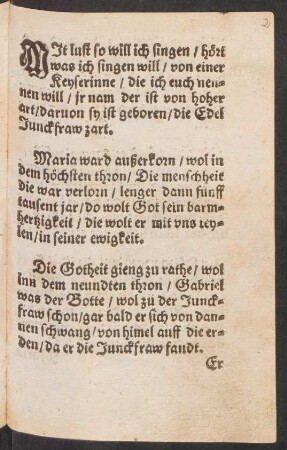 MIt lust so will ich singen / hört
was ich singen will / von einer
Keyserinne / die ich euch nen-
nen will / jr nam der ist von hoher
art / daruon sy ist geboren / die Edel
Junckfraw zart.
Maria ward außerkorn / wol in
dem höchsten thron / Die menschheit
die war verlorn / lenger dann fünff
tausent jar / do wolt Got sein barm-
hertzigkeit / die wolt er mit vns tey-
len / in seiner ewigkeit.
Die Gotheit gieng zu rathe / wol
inn dem neundten thron / Gabriel
was der Botte / wol zu der Junck-
fraw schon / gar bald er sich von dan-
nen schwang / von himel auff die er-
den / da er die Junckfraw fandt.
Er